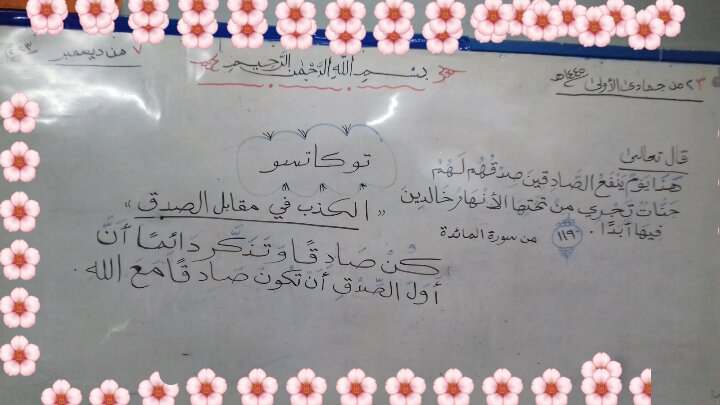 ٢٣ من جمادى الأولى ١٤٤٥هـ
بسم الله الرحمن الرحيم
٧ من ديسمبر
قال تعالى
هَذَا يَوْمُ يَنْفَعُ الصَّادِقِينَ صِدْقُهُمْ لَهُمْ
جَنَّاتٌ تَجْرِي مِنْ تَحْتِهَا الأَنْهَارُ خَالِدِينَ
فِيهَا أَبَدًا . ١١٩ من سورة المائدة
توكاتسو
« الكذب في مقابل الصدق »
كُنْ صَادِقًا وَتَذَكَّر دَائِمًا أَنَّ
أوَل الصِّدْقِ أَنْ تَكُونَ صَادِقًا مَعَ الله .